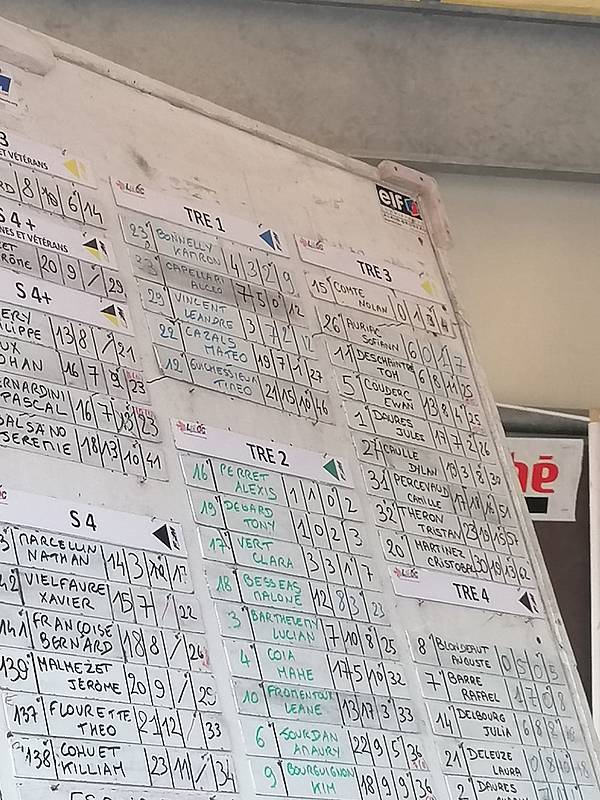 ET VÉTÉRANS
8 10 6 14
S 4+
NES ET VÉTÉRANS
20 9 / 29
S 4+
13 8 / 21
16 7 9 23
BERNARDINI
PASCAL
16 7
JEREMIE
18 13 10 41
S 4
MARCELLIN
NATHAN
14 3
VIELFAURE
XAVIER
15 7 / 22
141 FRANÇOISE
BERNARD
18 8 / 26
139 MALMEZET
JÉRÔME
20 9 / 29
137 FLOURETTE
THEO
21 12 / 33
138 COHUET
KILLIAM
23 11 / 34
TRE 1
23 BONNELLY
KAMRON
4 3 2 9
33 CAPELLARI
7 5 0 12
29 VINCENT
LEANDRE
3 7 2 12
22 CAZALS
MATEO
19 7 1 27
12 GUICHESSIEUX
TIMEO
21 15 10 46
TRE 2
16 PERRET
ALEXIS
1 1 0 2
19 DEGARD
TONY
1 0 2 3
17 VERT
CLARA
3 3 1 7
18 BESSEAS
MALONE
12 8 3 23
3 BARTHELEMY
LUCIAN
7 10 8 25
4 COIA
MAHE
17 5 10 32
10 FROMENTOUX
LEANE
13 17 3 33
6 JOURDAN
AMAURY
22 9 5 36
9 BOURGUIGNON
KIM
18 9 9 36
elf
TRE 3
15 COMTE
NOLAN
0 1 3 4
26 AURIAC
SOFIANN
6 0 1 7
11 DESCHAINTRE
TOM
6 8 11 25
5 COUDERC
EWAN
13 8 4 25
1 DAURES
JULES
17 7 2 26
27 CAULLE
DYLAN
31 PERCEVAUD
CAMILLE
17 18 16 51
32 THERON
TRISTAN
23 19 15 57
20 MARTINEZ
CRISTOBAL
30 19 13 62
TRE 4
8 BLONDEAUT
AUGUSTE
0 5 0 5
7 BARRE
RAFAEL
1 7 0 8
14 DELBOURG
JULIA
6 8 2 16
21 DELEUZE
LAURA
0 8 10 18
2 DAURES
hé